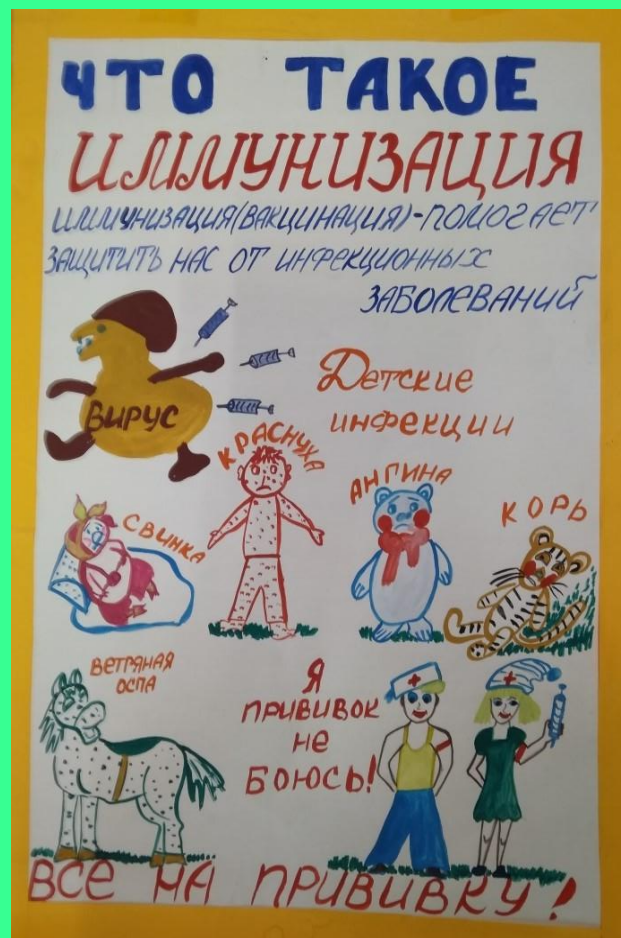 ЧТО ТАКОЕ
ИММУНИЗАЦИЯ
ИММУНИЗАЦИЯ(ВАКЦИНАЦИЯ)-ПОМОГАЕТ
ЗАЩИТИТЬ НАС ОТ ИНФЕКЦИОННЫХ
ЗАБОЛЕВАНИЙ
ВИРУС
Детские
инфекции
КРАСНУХА
АНГИНА
КОРЬ
СВИНКА
ВЕТРЯНАЯ
ОСПА
Я
ПРИВИВОК
НЕ
БОЮСЬ!
ВСЕ НА ПРИВИВКУ!